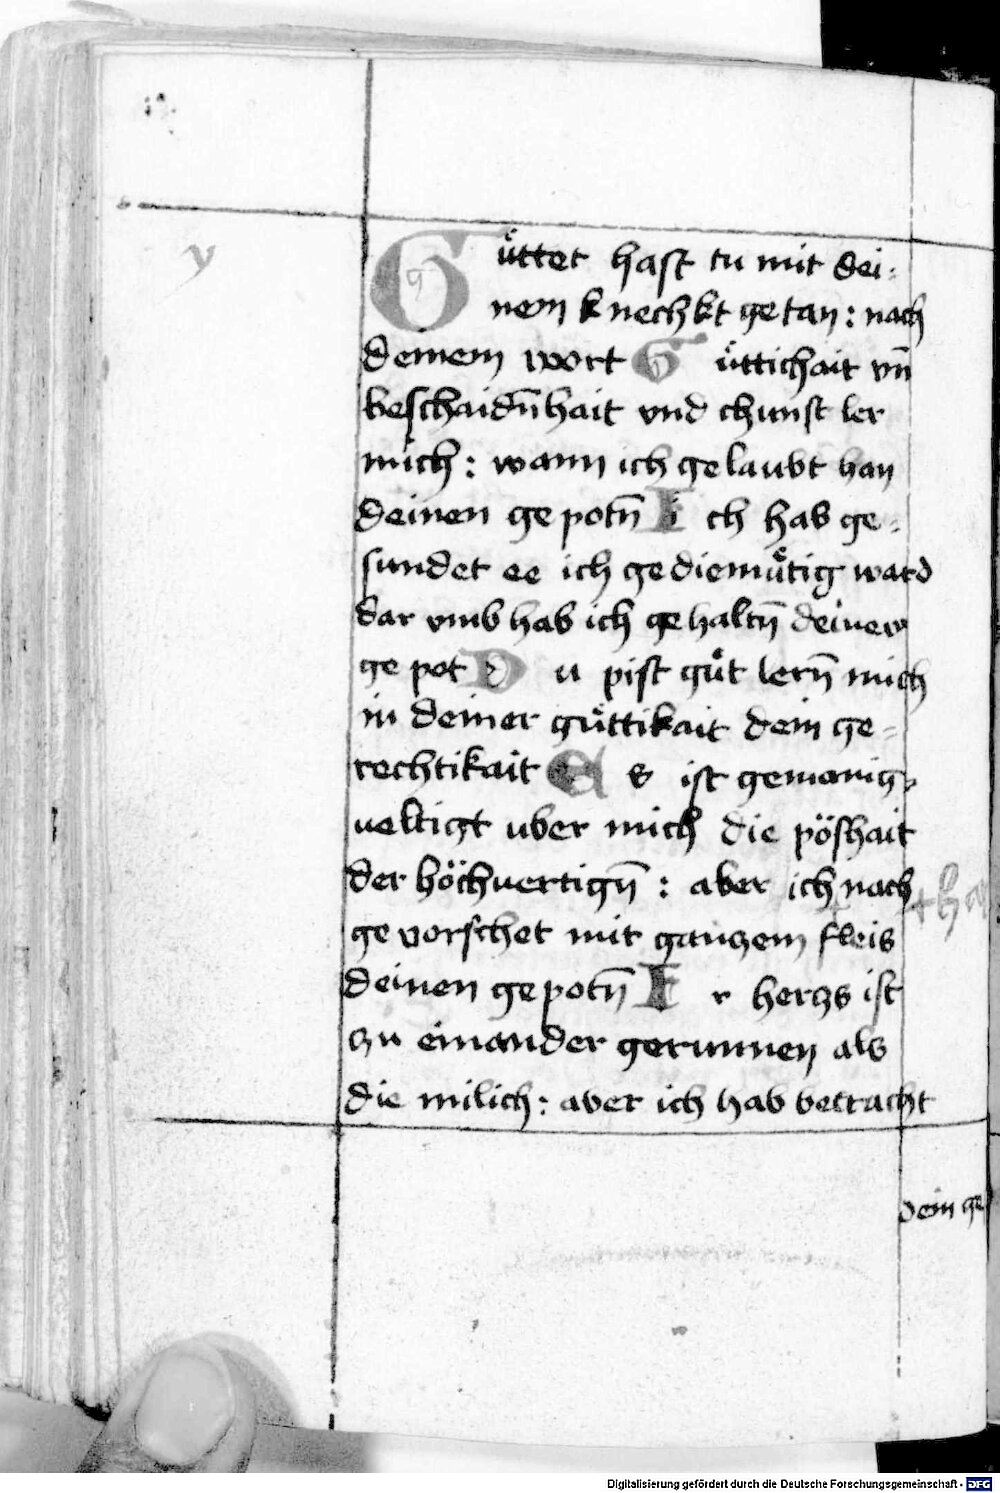 v
Gůttet hast tu mit dei:
nem knechkt getan : nach
deinem wort Gůttichait vn̄
beschaidn̄hait vnd chunst ler
mich : wann ich gelaubt han
deinen gepotn̄ Ich hab ge:
sundet ee ich gediemůtig ward
dar vmb hab ich gehaltn̄ deinew
gepot Du pist gůt lern̄ mich
in deiner gůttikait dein ge:
rechtikait Es ist gemanig:
ueltigt uber mich die pöshait
der höchuertign̄ : aber ich nach
+ha
ge vorschet mit ganczem fleis
deinen gepotn̄ Ir hercz ist
zu einander gerunnen als
die milich : aber ich hab betracht
dein ge
Digitalisierung gefördert durch die Deutsche Forschungsgemeinschaft - DFG